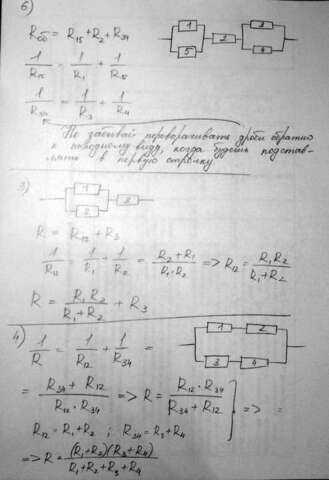 6)
1
3
2
5
4
Rоб = R₁₅ + R₂ + R₃₄
1/R₁₅ = 1/R₁ + 1/R₁₅
1/R₃₄ = 1/R₃ + 1/R₄
Не забывай переворачивать дроби обратно
к исходному виду, когда будешь подстав-
лять в первую строчку.
3)
1
2
2
R = R₁₂ + R₃
1/R₁₂ = 1/R₁ + 1/R₂ = (R₂ + R₁)/(R₁ · R₂) => R₁₂ = R₁R₂/(R₁ + R₂)
R = R₁R₂/(R₁ + R₂) + R₃
4)
1/R = 1/R₁₂ + 1/R₃₄ =
1
2
3
4
= (R₃₄ + R₁₂)/(R₁₂ · R₃₄) => R = (R₁₂ · R₃₄)/(R₃₄ + R₁₂) } => =
R₁₂ = R₁ + R₂ ; R₃₄ = R₃ + R₄
=> R = (R₁+R₂)(R₃+R₄)/(R₁ + R₂ + R₃ + R₄)